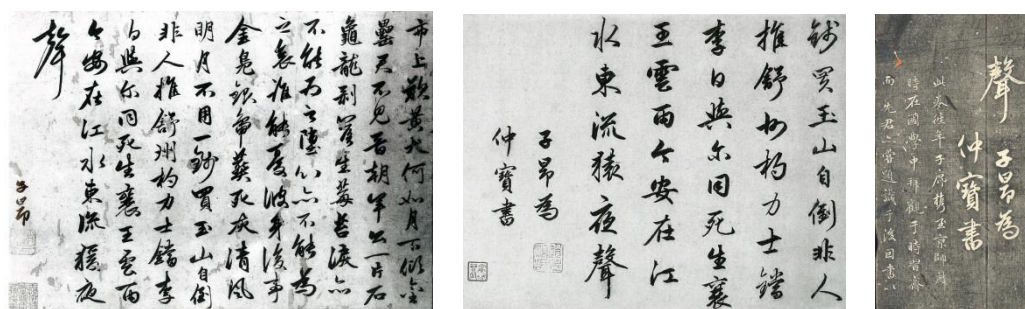 市上歎黃犬何如月下傾金
罍君不見晉朝羊公一片石
龜龍剝落生莓苔淚亦
不能為之墮心亦不能為
之哀誰能憂彼身後事
金鳧銀鴨葬死灰清風
明月不用一錢買玉山自倒
非人推舒州杓力士鐺李
白與爾同死生襄王雲雨
今安在江水東流猿夜
聲
子昂
錢買玉山自倒非人
推舒州杓力士鐺
李白與爾同死生襄
王雲雨今安在江
水東流猿夜聲
子昂為
仲寶書
聲
子昂為
仲寶書
此卷往年子携至京師
時在國學中拜觀于時齋
而先君亦嘗題識于後因書以